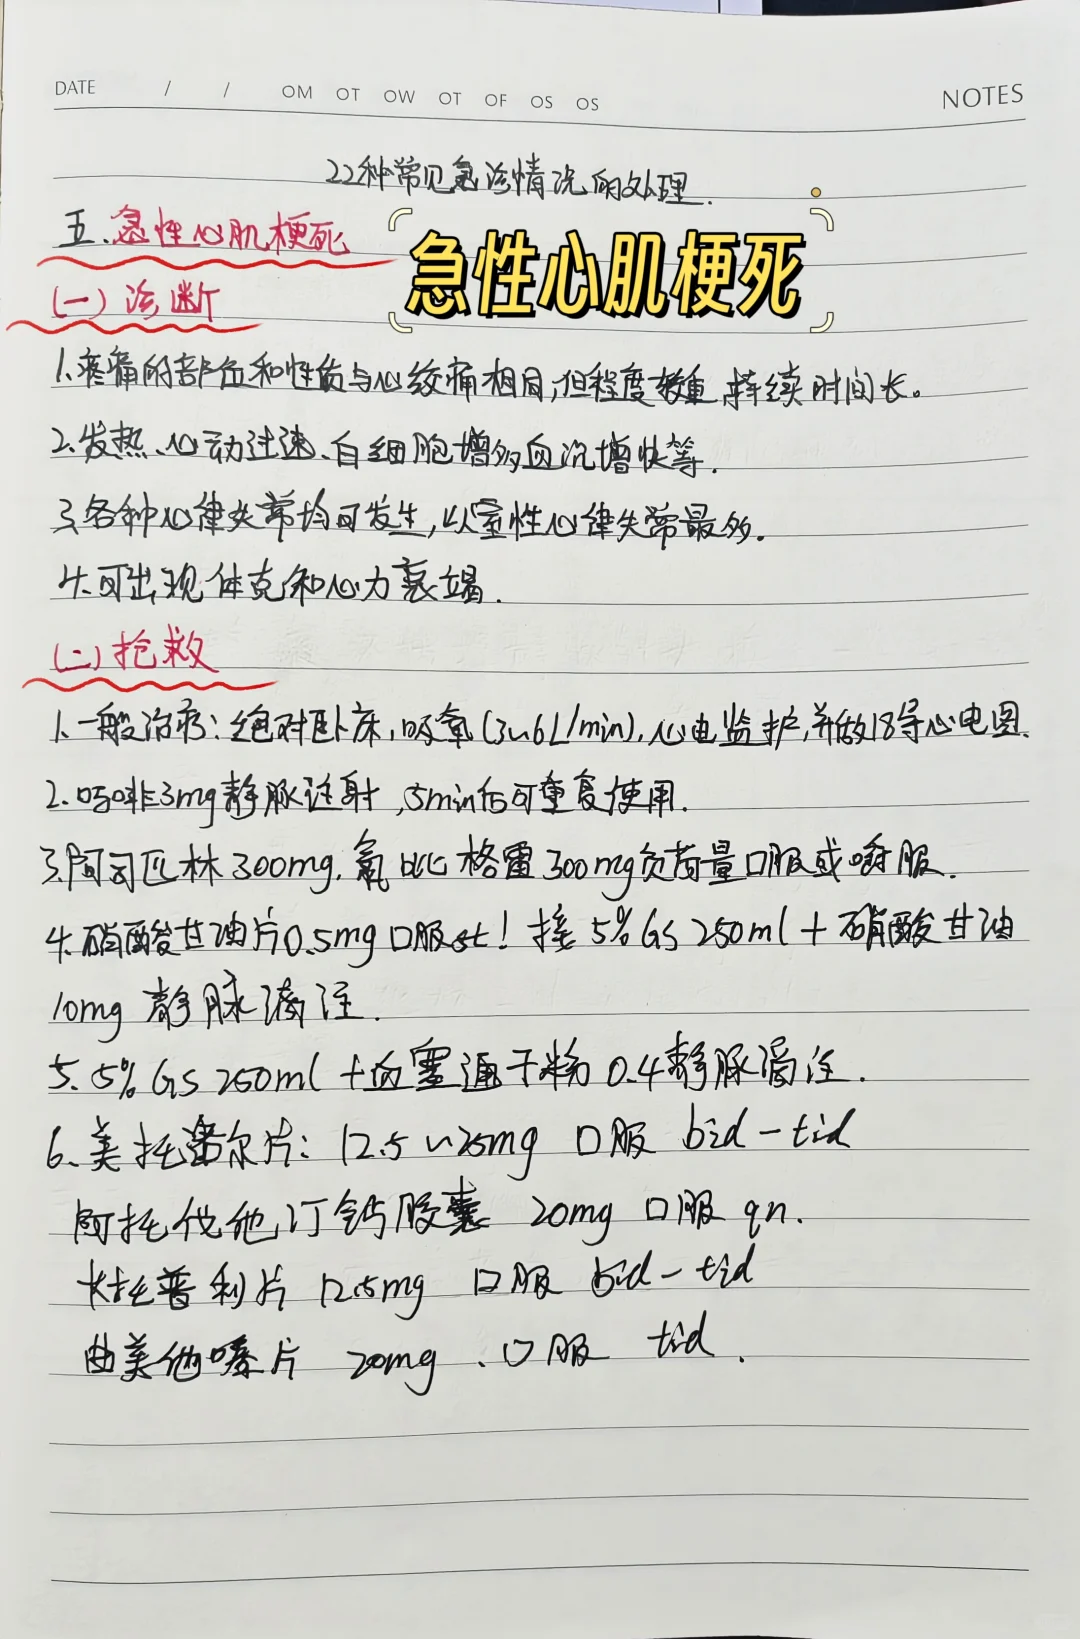 DATE / / OM OT OW OT OF OS OS NOTES
22种常见急诊情况的处理.
五.急性心肌梗死
急性心肌梗死
(一)诊断
1.疼痛的部位和性质与心绞痛相同,但程度较重,持续时间长。
2.发热、心动过速、白细胞增多血沉增快等.
3.各种心律失常均可发生,以室性心律失常最多.
4.可出现休克和心力衰竭.
(二)抢救
1.一般治疗:绝对卧床,吸氧(3~6L/min),心电监护,并做18导心电图.
2.吗啡3mg静脉注射,5min后可重复使用.
3.阿司匹林300mg.氯吡格雷300mg负荷量口服或嚼服.
4.硝酸甘油片0.5mg口服st!接5%GS 250ml+硝酸甘油
10mg静脉滴注.
5.5%GS 250ml+血塞通干粉0.4静脉滴注.
6.美托洛尔片:12.5~25mg 口服 bid-tid
阿托伐他汀钙胶囊 20mg 口服 qn.
卡托普利片 12.5mg 口服 bid-tid
曲美他嗪片 20mg、口服 tid.